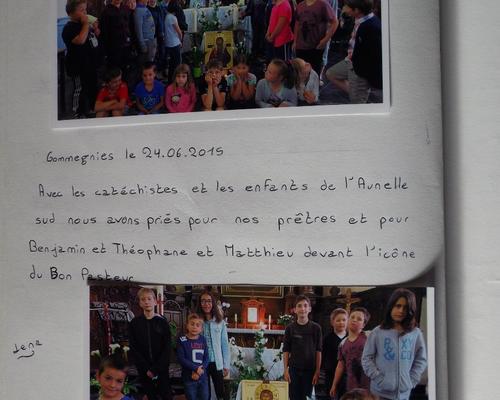 Gommegnies le 24.06.2015
Avec les catéchistes et les enfants de l'Aunelle
sud nous avons priés pour nos prêtres et pour
Benjamin et Théophane et Matthieu devant l'icône
du Bon Pasteur
ROXY
& CO